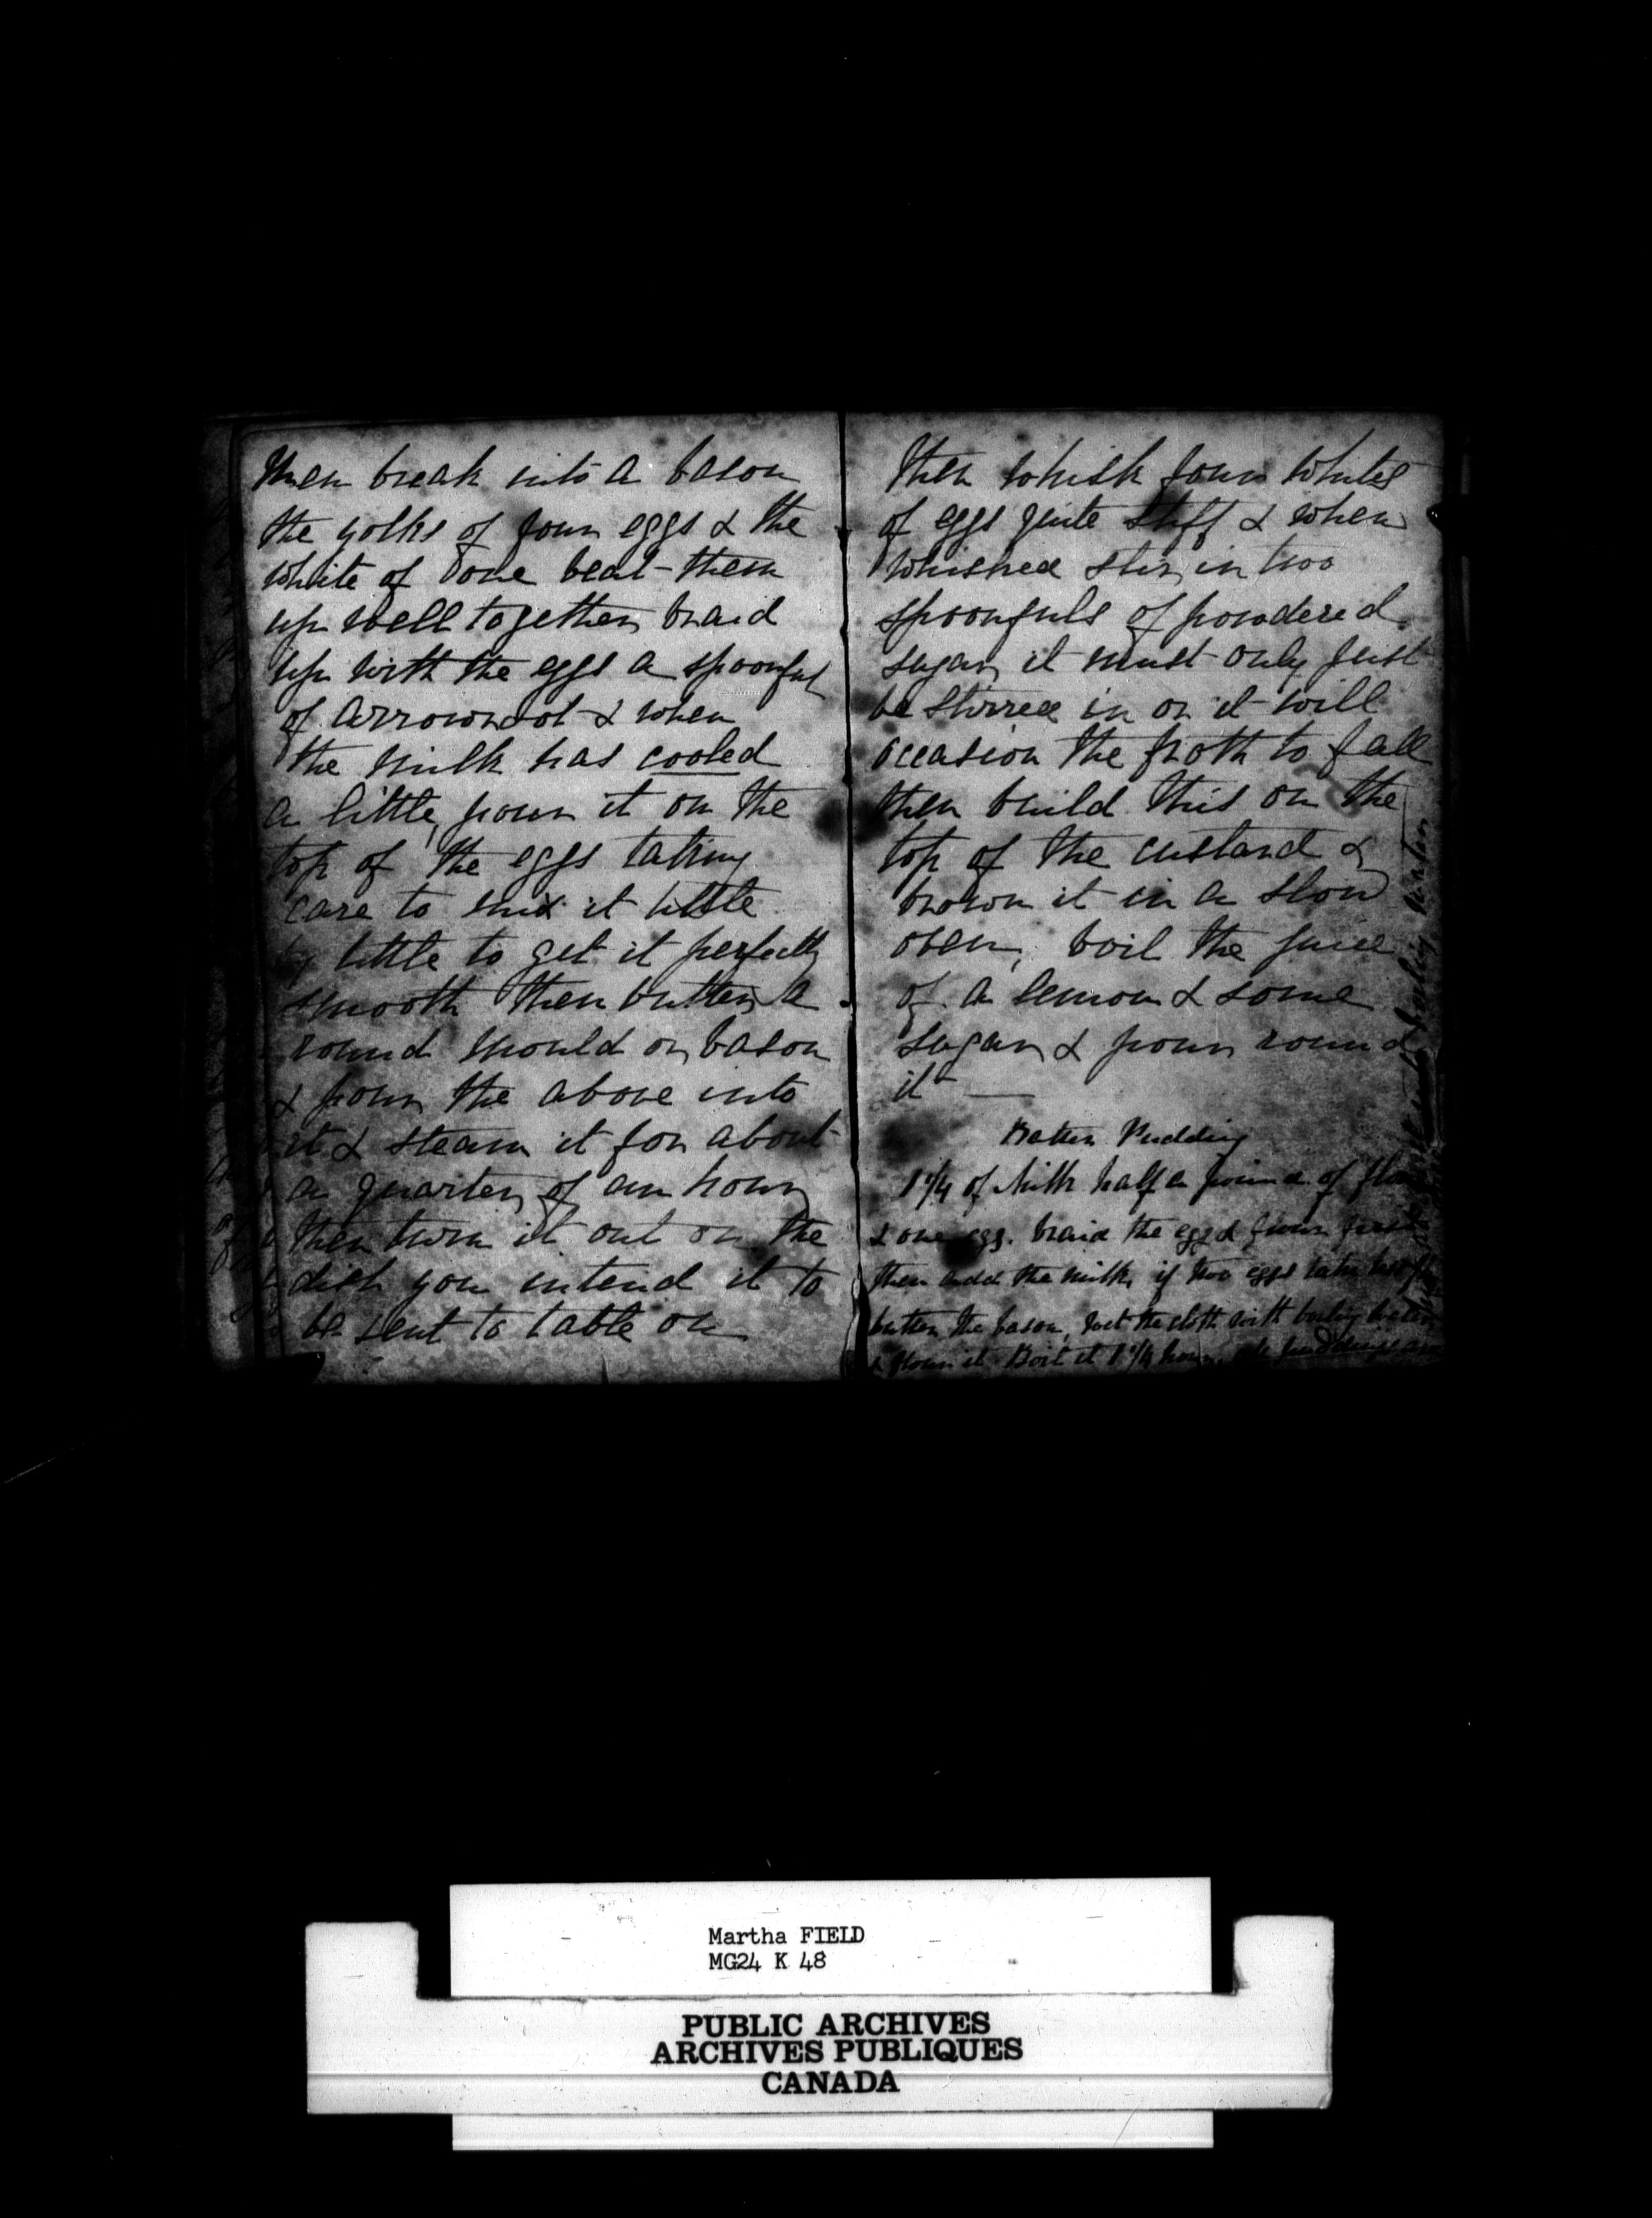 then break into a bason
the yolks of four eggs & the
white of one beat them
up well together braid
up with the eggs a spoonful
of arrowroot & when
the milk has cooled
a little, pour it on the
top of the eggs taking
care to mix it little
by little to get it perfectly
smooth then butter a
round mould or bason
& pour the above into
it & steam it for about
a quarter of an hour
then turn it out on the
dish you intend it to
be sent to table on
then whisk four whites
of eggs quite stiff & when
whisked stir in two
spoonfuls of powdered
sugar, it must only just
be stirred in or it will
occasion the froth to fall
then build this on the
top of the custard &
brown it in a slow
oven, boil the juice
of a lemon & some
sugar & pour round
it —
Batter Pudding
1 1/4 of Milk half a pound of flour
& one egg. braid the egg & flour first
then add the milk, if two eggs take less
butter the bason, wet the cloth with boiling water
& flour it Boil it 1 1/4 hour, all puddings are
boiling water
Martha FIELD
MG24 K 48
PUBLIC ARCHIVES
ARCHIVES PUBLIQUES
CANADA